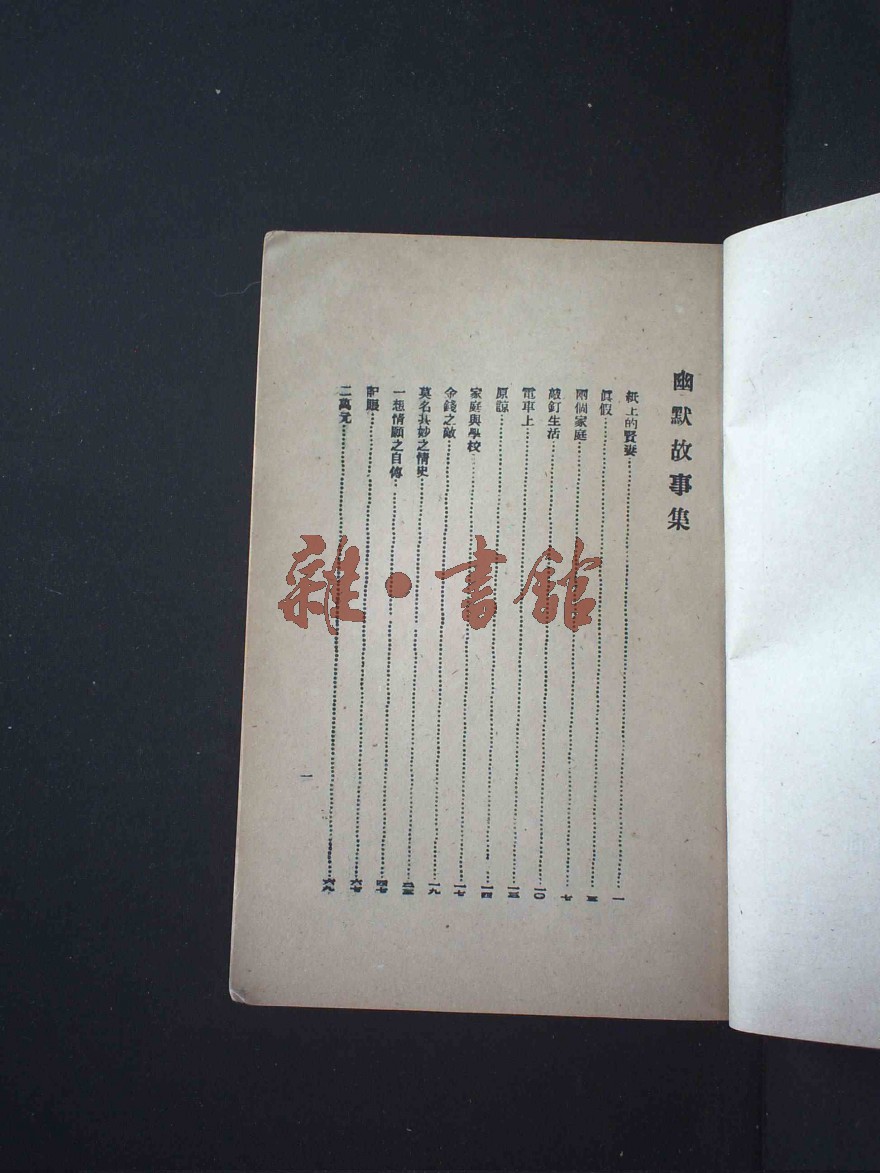 幽默故事集
紙上的賢妻……一
眞假……三
兩個家庭……七
敲釘生活……一〇
電車上……一三
原諒……一四
家庭與學校……一七
金錢之敵……一九
莫名其妙之情史……
一想情願之自傳……四七
記賬……六七
二萬元……六九
一
雜·書館